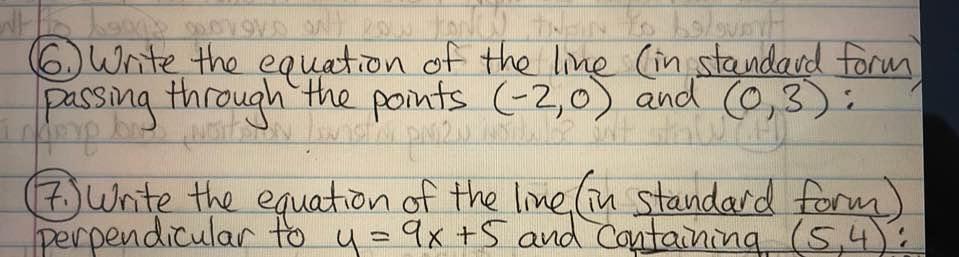 6.) Write the equation of the line (in standard form)
passing through the points (-2,0) and (0,3):
7.) Write the equation of the line (in standard form)
perpendicular to y = 9x +5 and containing (5,4):